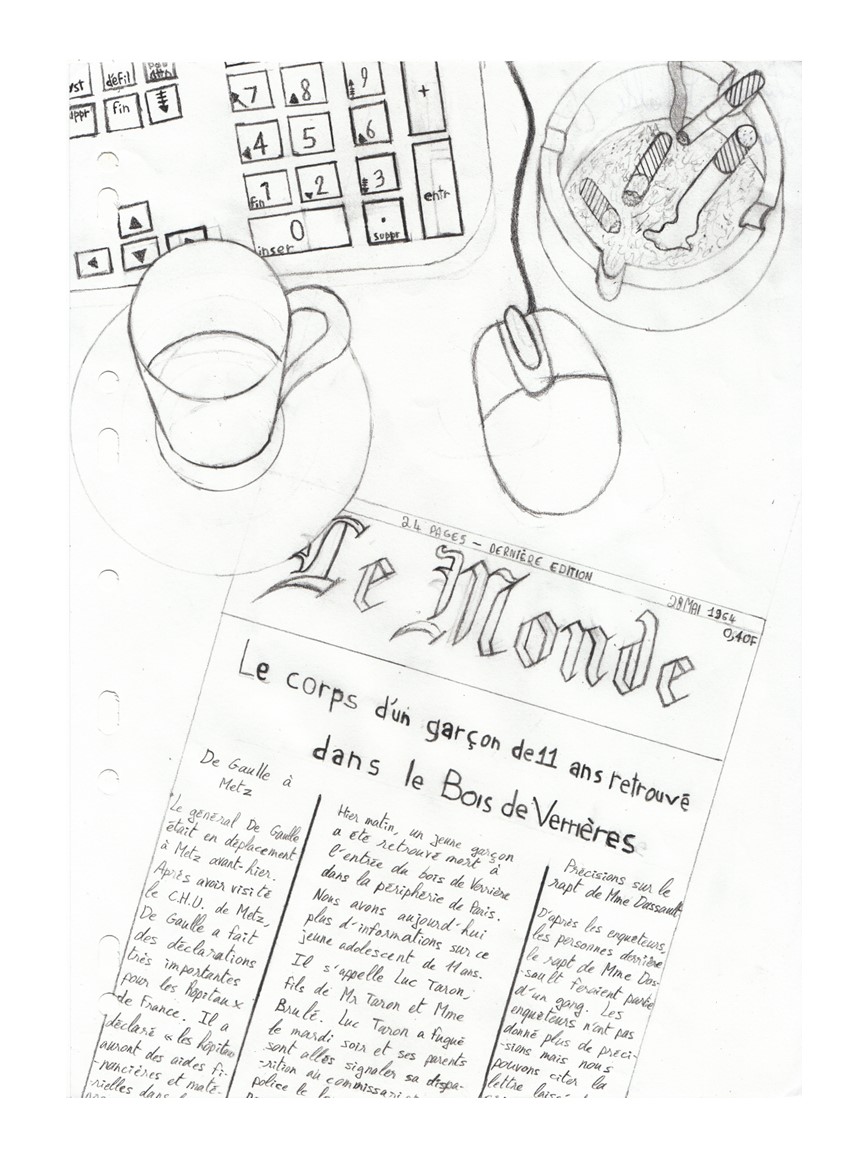 défil
fin
7
8
9
+
4
5
6
fin
1
2
3
entr
0
inser
.
suppr
24 PAGES - DERNIÈRE EDITION
28 MAI 1964
Le Monde
0,40F
Le corps d'un garçon de 11 ans retrouvé
dans le Bois de Verrières
De Gaulle à
Metz
Le général De Gaulle
était en déplacement
à Metz avant-hier.
Après avoir visité
le C.H.U. de Metz,
De Gaulle a fait
des déclarations
très importantes
pour les hôpitaux
de France. Il a
déclaré « les hôpitaux
auront des aides fi-
-nancières et maté-
-rielles dans
Hier matin, un jeune garçon
a été retrouvé mort à
l'entrée du bois de Verrière
dans la périphérie de Paris.
Nous avons aujourd'hui
plus d'informations sur ce
jeune adolescent de 11 ans.
Il s'appelle Luc Taron,
fils de Mr Taron et Mme
Brulé. Luc Taron a fugué
le mardi soir et ses parents
sont allés signaler sa dispa-
-rition au commissariat
police le
Précisions sur le
rapt de Mme Dassault
D'après les enquêteurs,
les personnes derrière
le rapt de Mme Das-
-sault feraient partie
d'un gang. Les
enquêteurs n'ont pas
donné plus de préci-
-sions mais nous
pouvons citer la
lettre